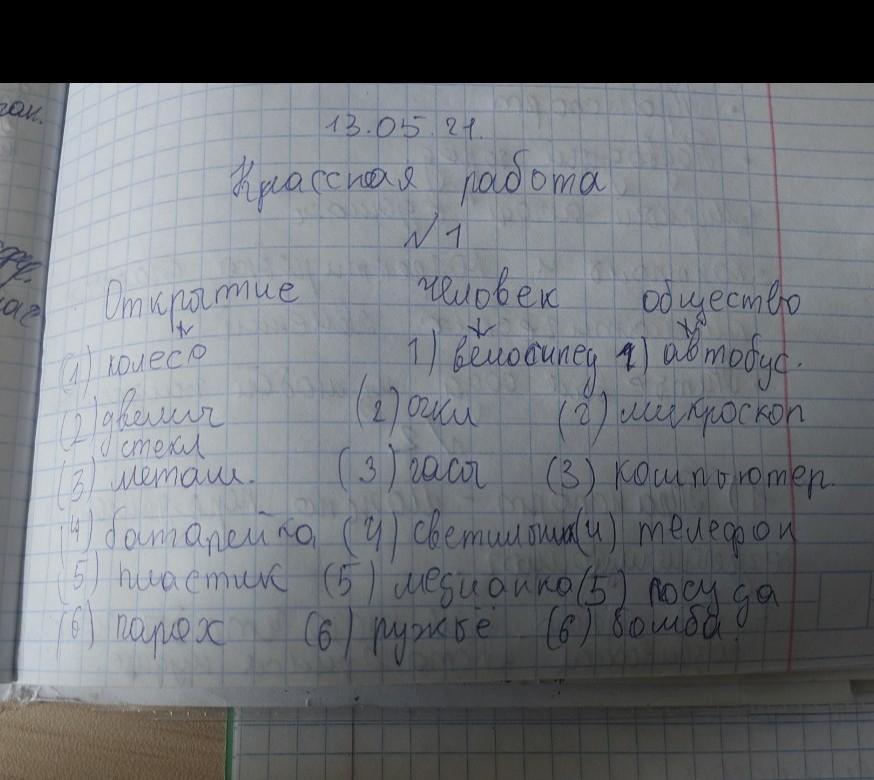 13.05.21.
Классная работа
№1
Открытие человек общество
(1) колесо 1) велосипед 1) автобус.
(2) увелич (2) очки (2) микроскоп
стекл
(3) металл. (3) часы (3) компьютер.
(4) батарейка (4) светильник (4) телефон
(5) пластик (5) (5) посуда
(6) парох (6) ружьё (6) бомба.